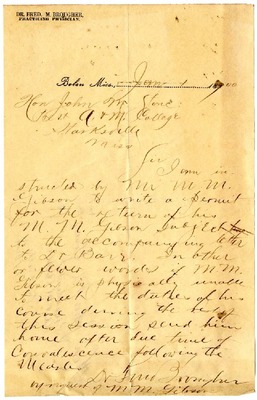 DR. FRED. M. BROUGHER,
PRACTICING PHYSICIAN.
Miss., Jan 1
Hon John M. Stone
Pres't A & M. College
Starksville
Miss
Sir I am in
structed by Mr M. M.
Gibson to write a permit
for the return of his
subject
to the accompanying letter
to Dr Barr In other
or fewer words if M M
Gibson is physically unable
to meet the duties of his
course during the
this session send him
home after due time of
Convalescence following the
Measles
Dr Fred Brougher
by request of M. M. Gibson